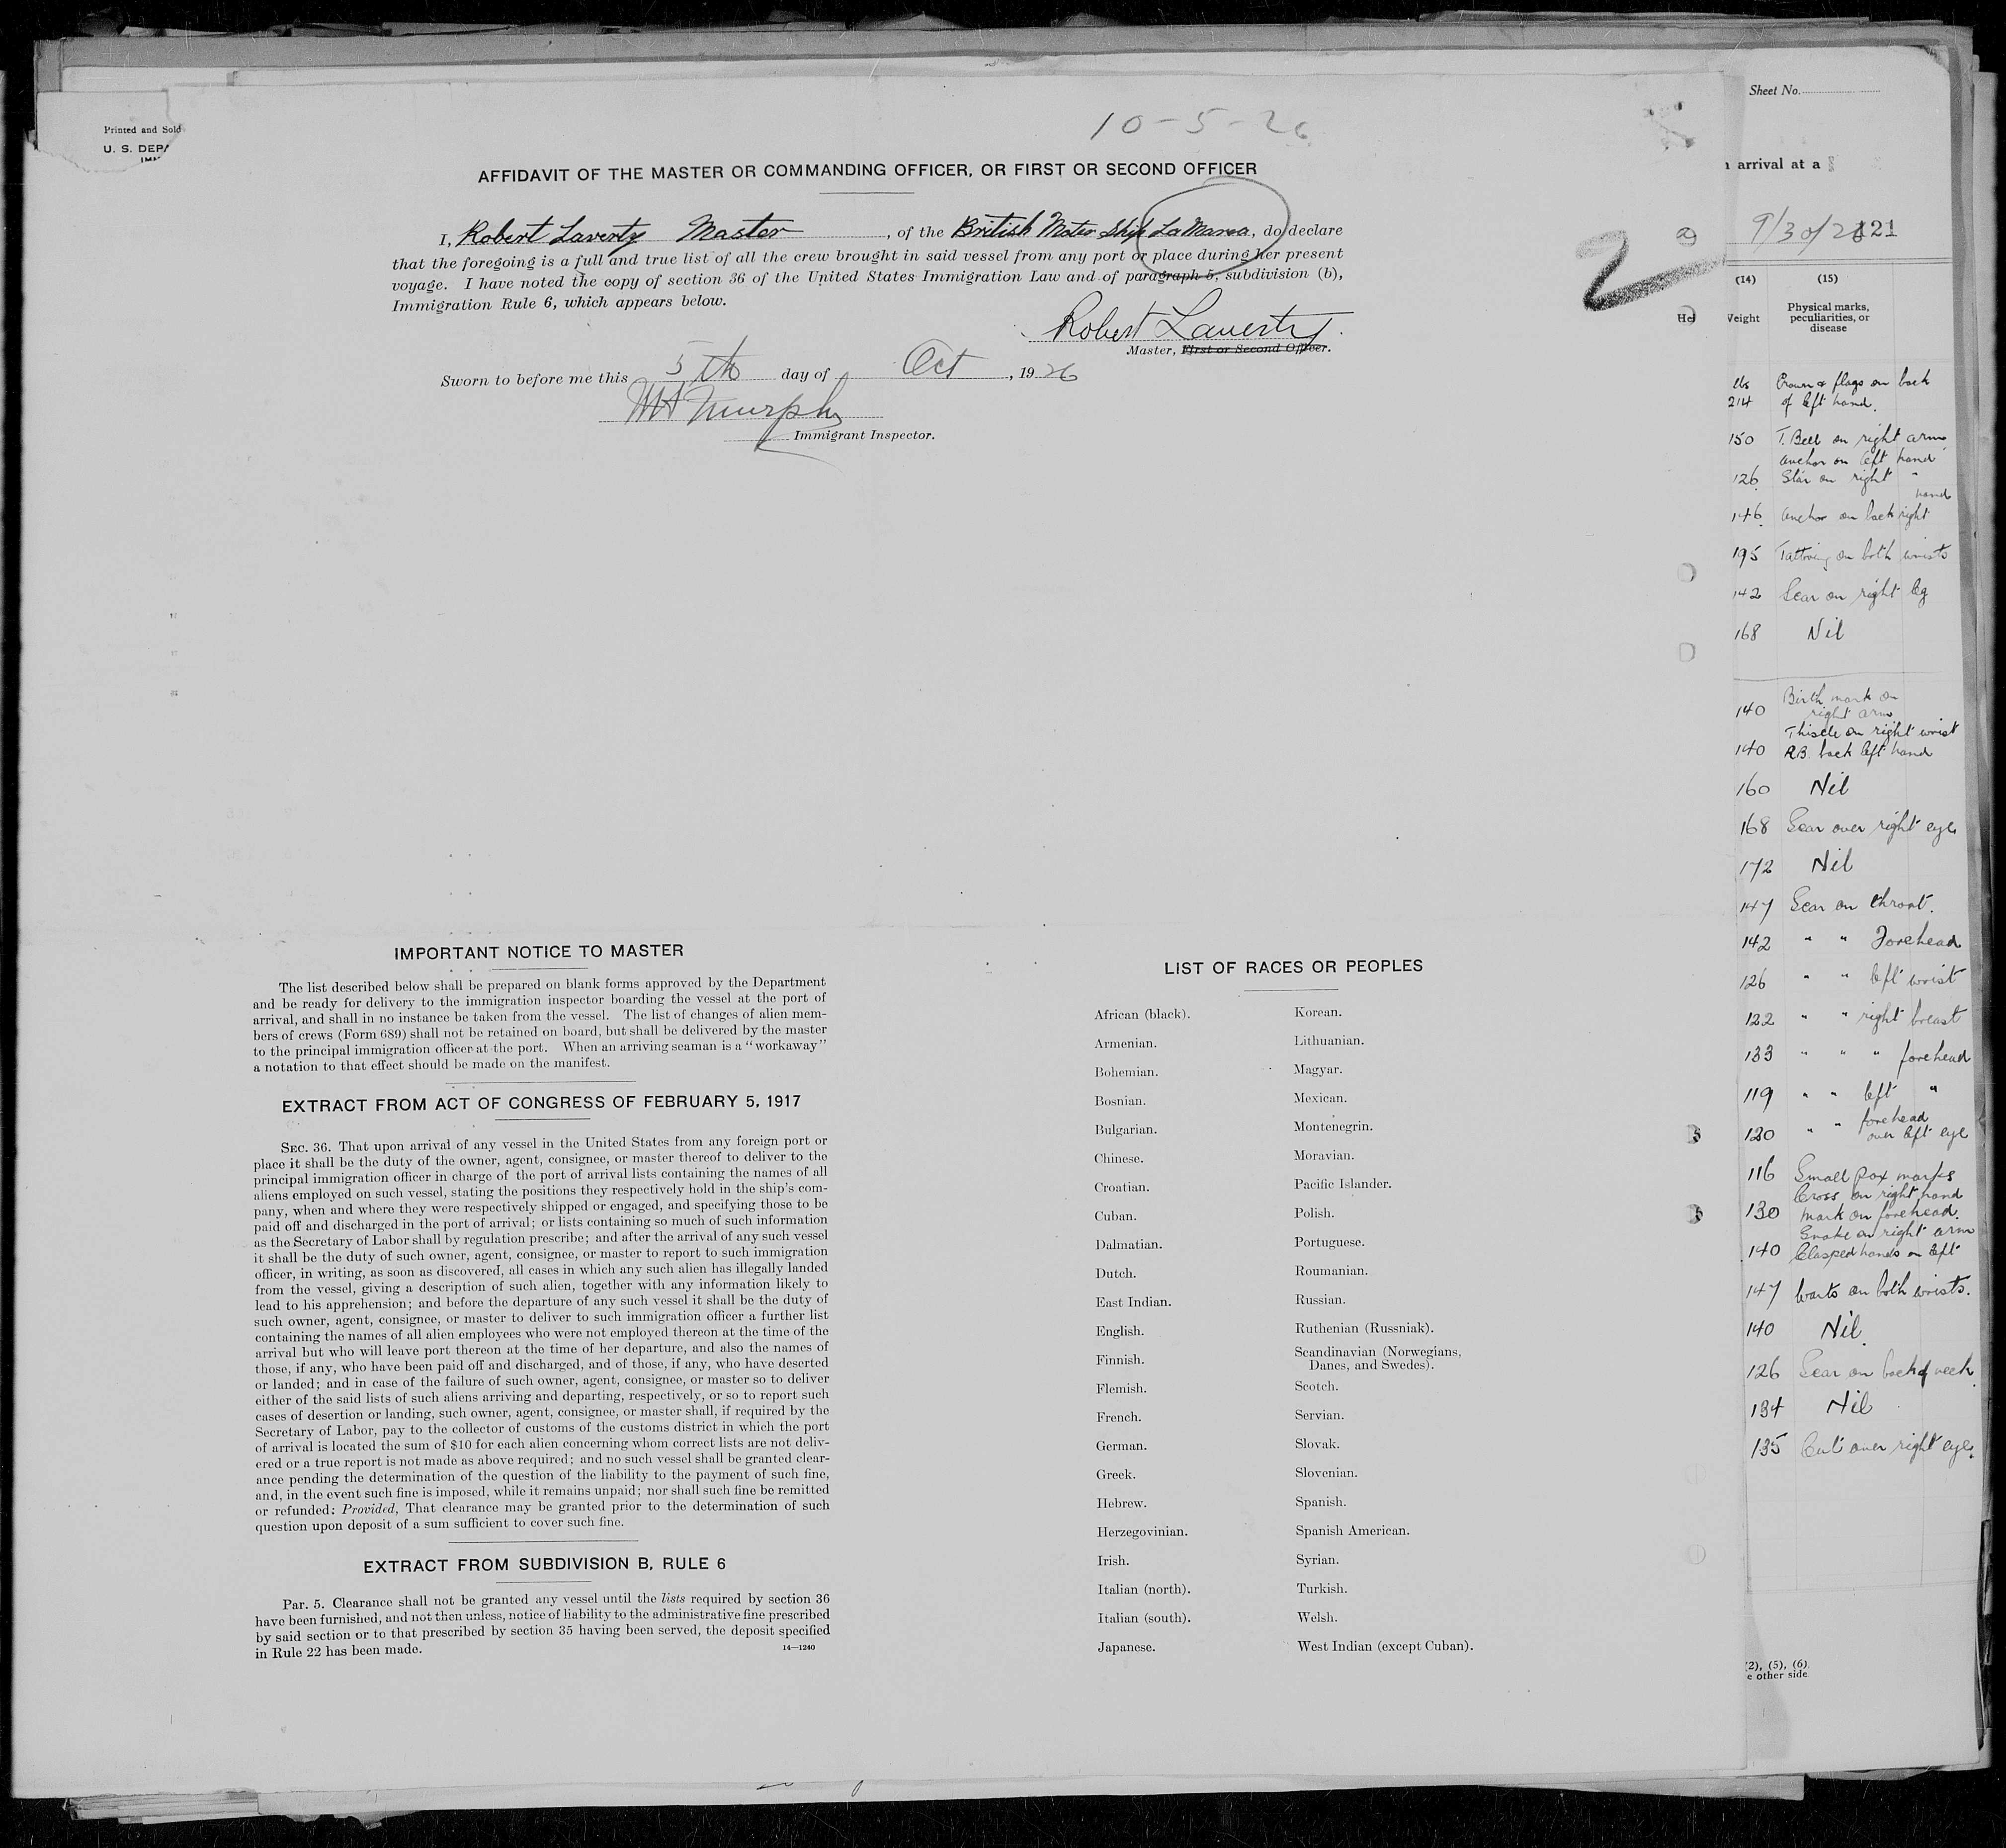 10-5-26
Printed and Sold
U. S. DEPA
AFFIDAVIT OF THE MASTER OR COMMANDING OFFICER, OR FIRST OR SECOND OFFICER
I, Robert Laverty Master, of the British Motor Ship La Marea, do declare
that the foregoing is a full and true list of all the crew brought in said vessel from any port or place during her present
voyage. I have noted the copy of section 36 of the United States Immigration Law and of paragraph 5, subdivision (b),
Immigration Rule 6, which appears below.
Robert Laverty.
Master, First or Second Officer.
Sworn to before me this 5th day of Oct, 1926
Murphy
Immigrant Inspector.
2
IMPORTANT NOTICE TO MASTER
The list described below shall be prepared on blank forms approved by the Department
and be ready for delivery to the immigration inspector boarding the vessel at the port of
arrival, and shall in no instance be taken from the vessel. The list of changes of alien mem-
bers of crews (Form 689) shall not be retained on board, but shall be delivered by the master
to the principal immigration officer at the port. When an arriving seaman is a "workaway"
a notation to that effect should be made on the manifest.
EXTRACT FROM ACT OF CONGRESS OF FEBRUARY 5, 1917
SEC. 36. That upon arrival of any vessel in the United States from any foreign port or
place it shall be the duty of the owner, agent, consignee, or master thereof to deliver to the
principal immigration officer in charge of the port of arrival lists containing the names of all
aliens employed on such vessel, stating the positions they respectively hold in the ship's com-
pany, when and where they were respectively shipped or engaged, and specifying those to be
paid off and discharged in the port of arrival; or lists containing so much of such information
as the Secretary of Labor shall by regulation prescribe; and after the arrival of any such vessel
it shall be the duty of such owner, agent, consignee, or master to report to such immigration
officer, in writing, as soon as discovered, all cases in which any such alien has illegally landed
from the vessel, giving a description of such alien, together with any information likely to
lead to his apprehension; and before the departure of any such vessel it shall be the duty of
such owner, agent, consignee, or master to deliver to such immigration officer a further list
containing the names of all alien employees who were not employed thereon at the time of the
arrival but who will leave port thereon at the time of her departure, and also the names of
those, if any, who have been paid off and discharged, and of those, if any, who have deserted
or landed; and in case of the failure of such owner, agent, consignee, or master so to deliver
either of the said lists of such aliens arriving and departing, respectively, or so to report such
cases of desertion or landing, such owner, agent, consignee, or master shall, if required by the
Secretary of Labor, pay to the collector of customs of the customs district in which the port
of arrival is located the sum of $10 for each alien concerning whom correct lists are not deliv-
ered or a true report is not made as above required; and no such vessel shall be granted clear-
ance pending the determination of the question of the liability to the payment of such fine,
and, in the event such fine is imposed, while it remains unpaid; nor shall such fine be remitted
or refunded: Provided, That clearance may be granted prior to the determination of such
question upon deposit of a sum sufficient to cover such fine.
EXTRACT FROM SUBDIVISION B, RULE 6
Par. 5. Clearance shall not be granted any vessel until the lists required by section 36
have been furnished, and not then unless, notice of liability to the administrative fine prescribed
by said section or to that prescribed by section 35 having been served, the deposit specified
in Rule 22 has been made.
14—1240
LIST OF RACES OR PEOPLES
African (black).
Armenian.
Bohemian.
Bosnian.
Bulgarian.
Chinese.
Croatian.
Cuban.
Dalmatian.
Dutch.
East Indian.
English.
Finnish.
Flemish.
French.
German.
Greek.
Hebrew.
Herzegovinian.
Irish.
Italian (north).
Italian (south).
Japanese.
Korean.
Lithuanian.
Magyar.
Mexican.
Montenegrin.
Moravian.
Pacific Islander.
Polish.
Portuguese.
Roumanian.
Russian.
Ruthenian (Russniak).
Scandinavian (Norwegians,
Danes, and Swedes).
Scotch.
Servian.
Slovak.
Slovenian.
Spanish.
Spanish American.
Syrian.
Turkish.
Welsh.
West Indian (except Cuban).
Sheet No.
arrival at a
9/30/26 121
(14) (15)
Weight
Physical marks,
peculiarities, or
disease
lbs Crown & flags on back
214 of left hand.
150 T. Bell on right arm
anchor on left hand
126 Star on right "
hand
146 Anchor on back right
195 Tattooing on both wrists
142 Scar on right leg
168 Nil
Birth mark on
140 right arm
Thistle on right wrist
140 R.B. back left hand
160 Nil
168 Scar over right eye
172 Nil
147 Scar on throat.
142 " " Forehead
126 " " left wrist
122 " " right breast
133 " " " forehead
119 " " left "
forehead
130 " " over left eye
116 Small pox marks
Cross on right hand
130 mark on forehead.
Snake on right arm
140 Clasped hands on left
147 Warts on both wrists.
140 Nil.
126 Scar on back of neck
134 Nil
135 Cut over right eye.
(2), (5), (6),
e other side